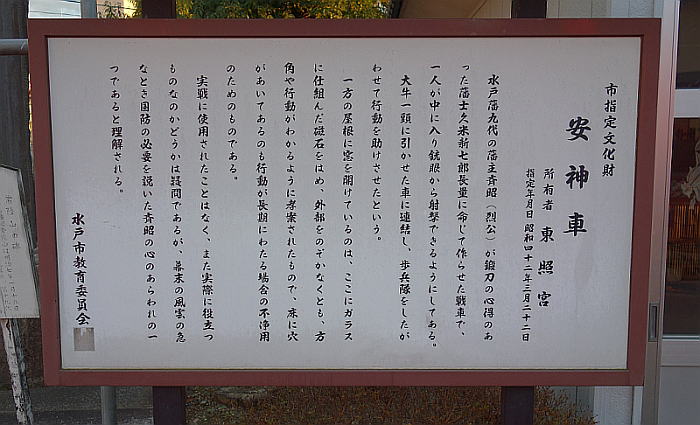 市指定文化財
安神車
所有者 東照宮
指定年月日 昭和四十二年三月二十二日
水戸藩九代の藩主斉昭（烈公）が鍛刀の心得のあ
った藩士久米新七郎長量に命じて作らせた戦車で、
一人が中に入り銃眼から射撃できるようにしてある。
大牛一頭に引かせた車に連結し、歩兵隊をしたが
わせて行動を助けさせたという。
一方の屋根に窓を開けているのは、ここにガラス
に仕組んだ磁石をはめ、外部をのぞかなくとも、方
角や行動がわかるように考案されたもので、床に穴
があいてあるのも行動が長期にわたる場合の不浄用
のためのものである。
実戦に使用されたことはなく、また実際に役立つ
ものなのかどうかは疑問であるが、幕末の風雲の急
なとき国防の必要を説いた斉昭の心のあらわれの一
つであると理解される。
水戸市教育委員会